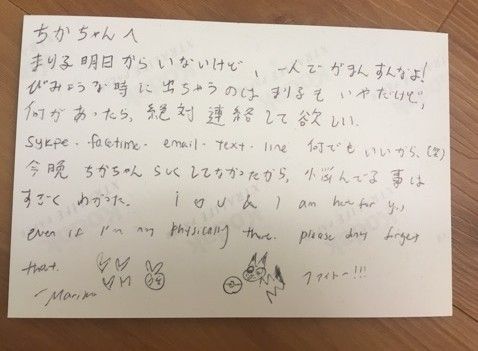 ちかちゃんへ
まり子明日からいないけど、一人でがまんすんなよ!
びみょうな時に出ちゃうのはまり子もいやだけど,
何かあったら、絶対連絡して欲しい.
sykpe・facetime・email・text・line 何でもいいから、(笑)
今晩 ちかちゃんらしくしてなかったから、悩んでる事は
すごくわかった. i ♡ u & I am here for you
even if I'm not physically there. please don't forget
that.
ファイトー!!!
~Mariko